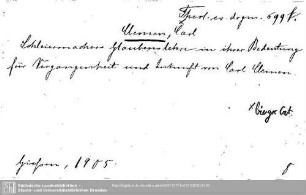 Theol. ev. dogm. 699 k.
Clemen, Carl
Schleiermachers Glaubenslehre in ihrer Bedeutung
für Vergangenheit und Zukunft von Carl Clemen.
Giessen, 1905. 8
Sächsische Landesbibliothek -
Staats- und Universitätsbibliothek Dresden